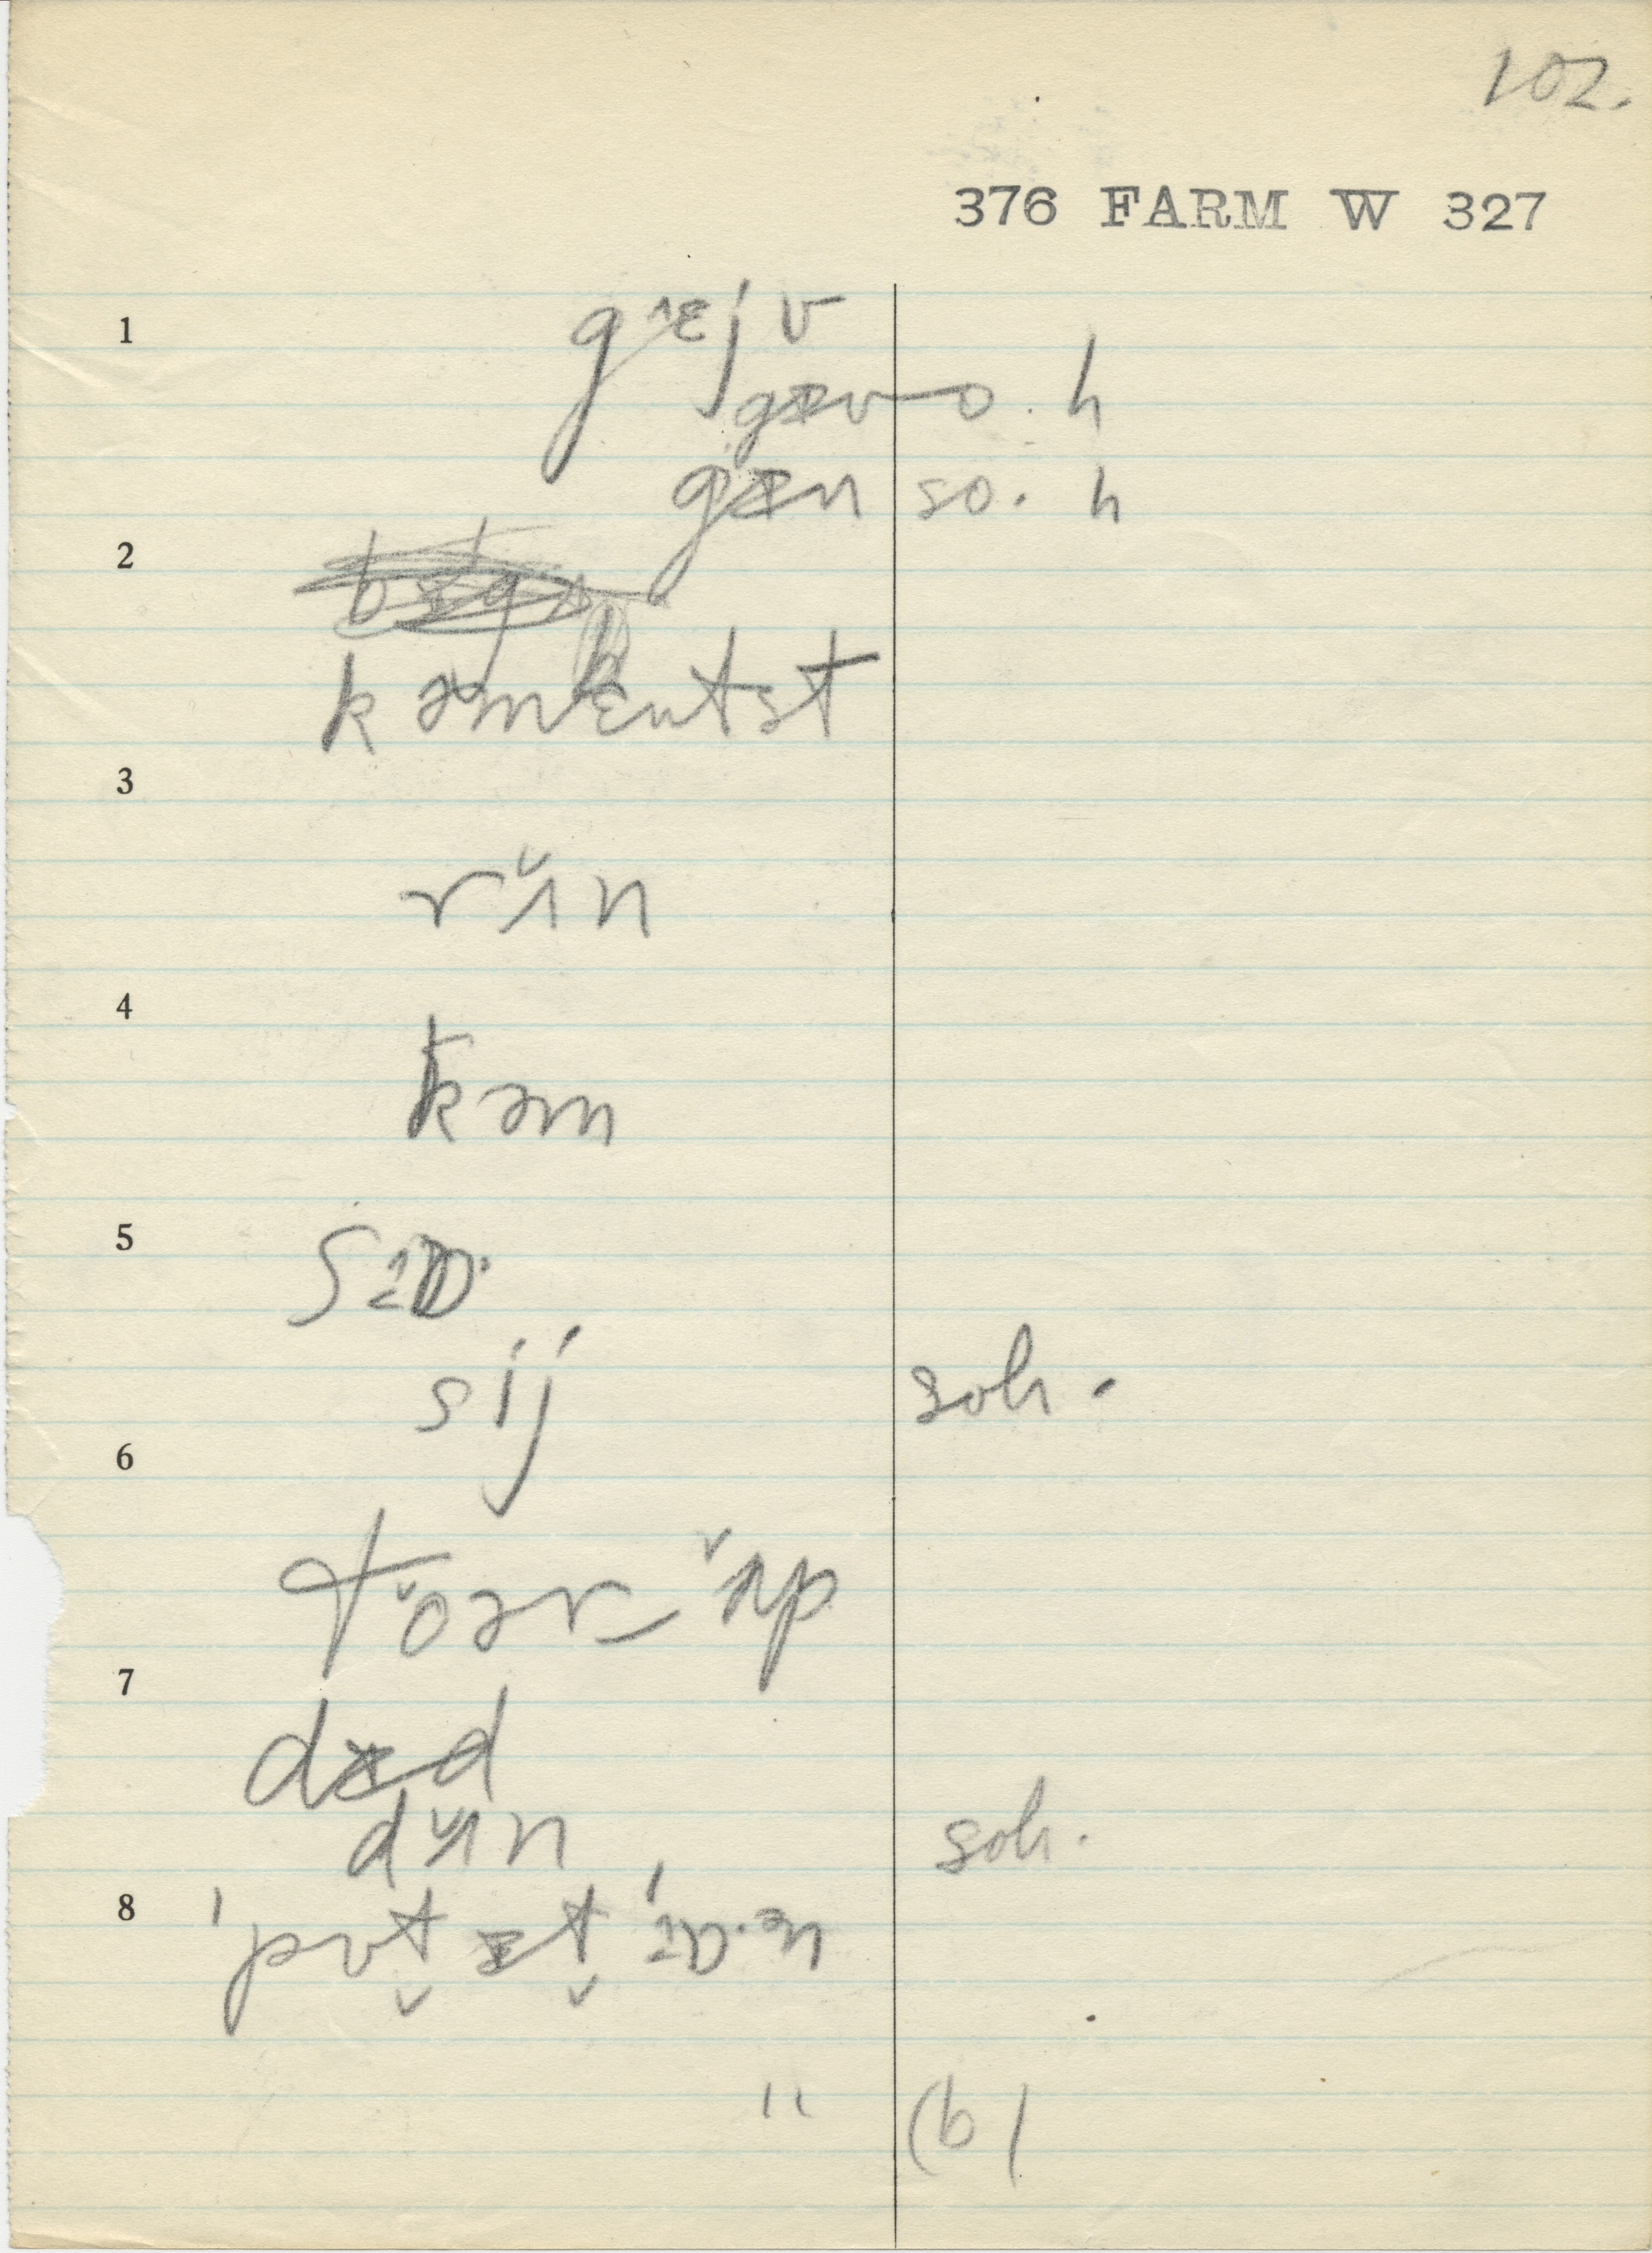 102.
376 FARM W 327
1
gɛjv
gɪv o. h
gɪn so. h
2
kəmɛntst
3
rʌ̆n
4
kəm
5
sɪɒ·
sij soh.
6
tŏər ʌ̆p
7
dɪd
dʌ̆n soh.
8
'pʊt̬ ɪt̬ 'ɒ·ən
" (b)